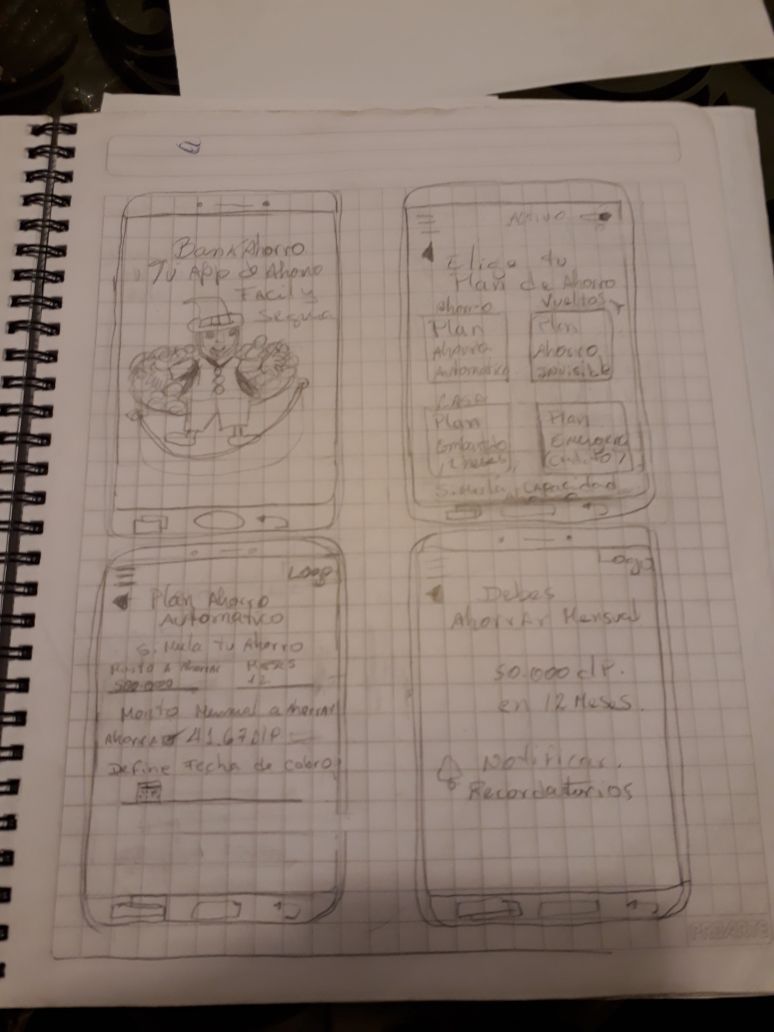 BankAhorro
Tu App de Ahorro
Facil y
Segura
Activo
Elige tu
Plan de Ahorro
Ahorro
Vueltos
Plan
Ahorro
Automatico
Plan
Ahorro
Invisible
CASA
Plan
Plan
Simula Capacidad
Logo
Plan Ahorro
Automatico
Simula tu Ahorro
Monto a Ahorrar
Meses
500.000
12
Monto Mensual a Ahorrar
Ahorrar 41.67
Define Fecha de cobro
Logo
Debes
Ahorrar Mensual
50.000
en 12 Meses.
Notificar.
Recordatorios